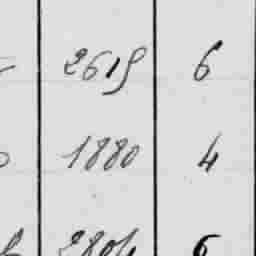 2619 6
1880 4
2804 6